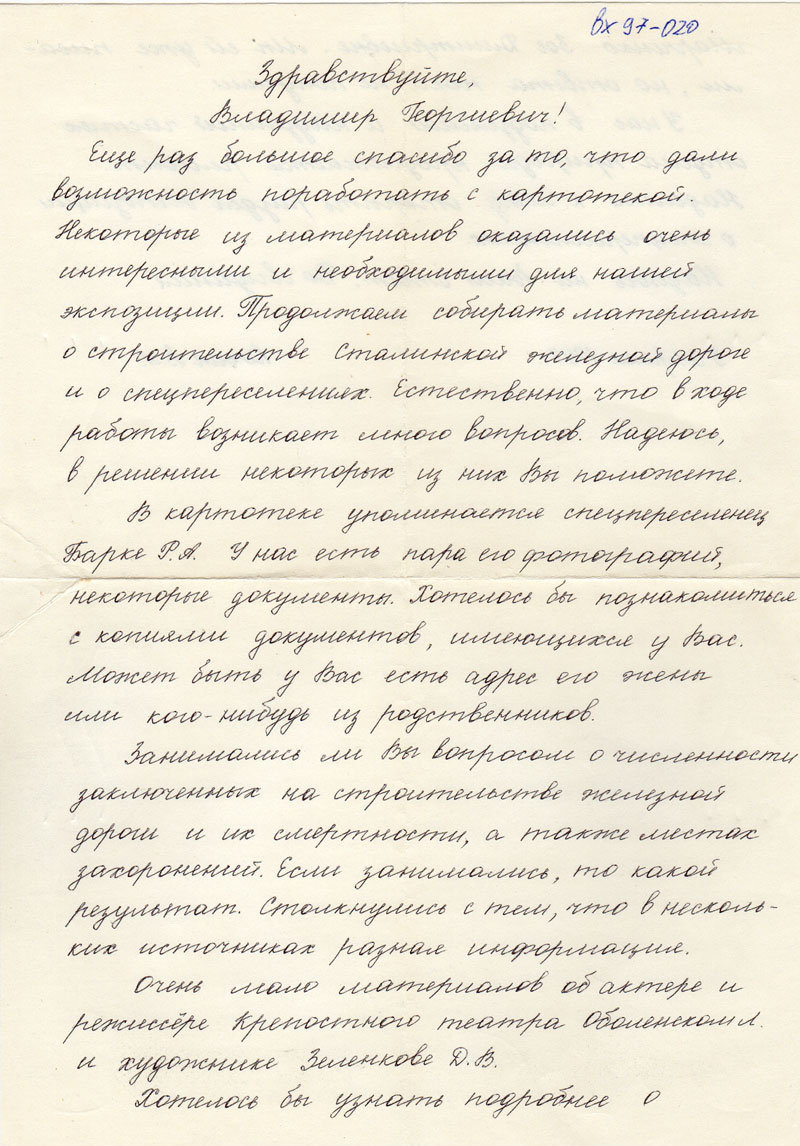 вх 97-020
Здравствуйте,
Владимир Георгиевич!
Еще раз большое спасибо за то, что дали
возможность поработать с картотекой.
Некоторые из материалов оказались очень
интересными и необходимыми для нашей
экспозиции. Продолжаем собирать материалы
о строительстве Сталинской железной дороге
и о спецпереселениях. Естественно, что в ходе
работы возникает много вопросов. Надеюсь,
в решении некоторых из них Вы поможете.
В картотеке упоминается спецпереселенец
Барке Р.А. У нас есть пара его фотографий,
некоторые документы. Хотелось бы познакомиться
с копиями документов, имеющихся у Вас.
Может быть у Вас есть адрес его жены
или кого-нибудь из родственников.
Занимались ли Вы вопросом о численности
заключенных на строительстве железной
дороги и их смертности, а также местах
захоронений. Если занимались, то какой
результат. Столкнулись с тем, что в несколь-
ких источниках разная информация.
Очень мало материалов об актере и
режиссёре Крепостного театра Оболенском Л.
и художнике Зеленкове Д.В.
Хотелось бы узнать подробнее о